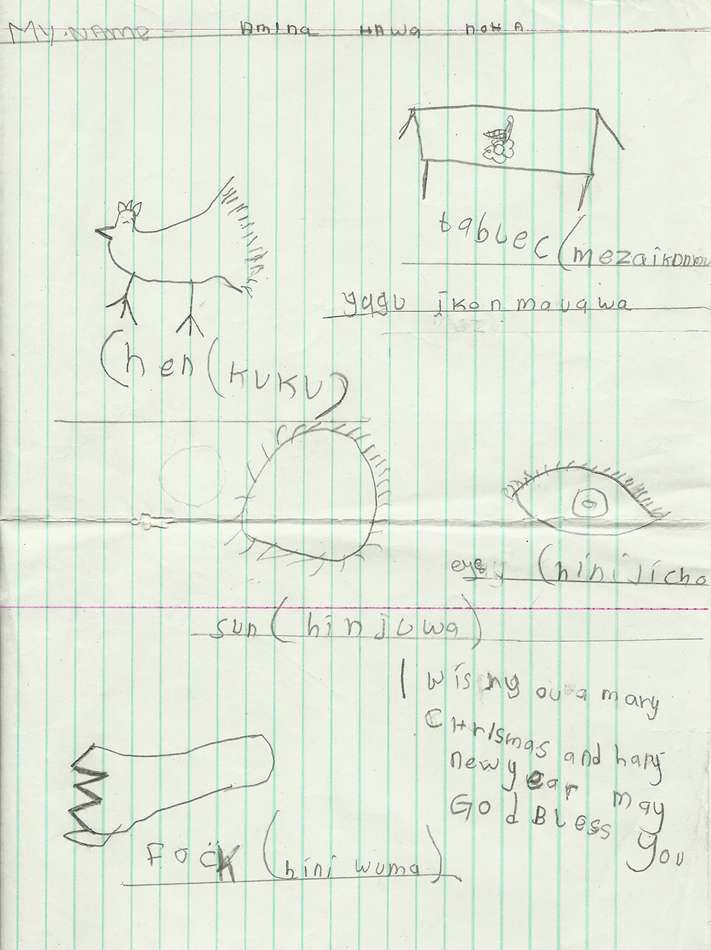 MY.NAME Amina HAwa noHA
tablec (mezaikonou
yagu ikon mauawa
(hen (KUKU)
eye (hini Jicho
sun (hinjuwa)
I wis ny ou a mary
CHrismas and hapy
new year may
God Bless you
FocK (hini wuma)